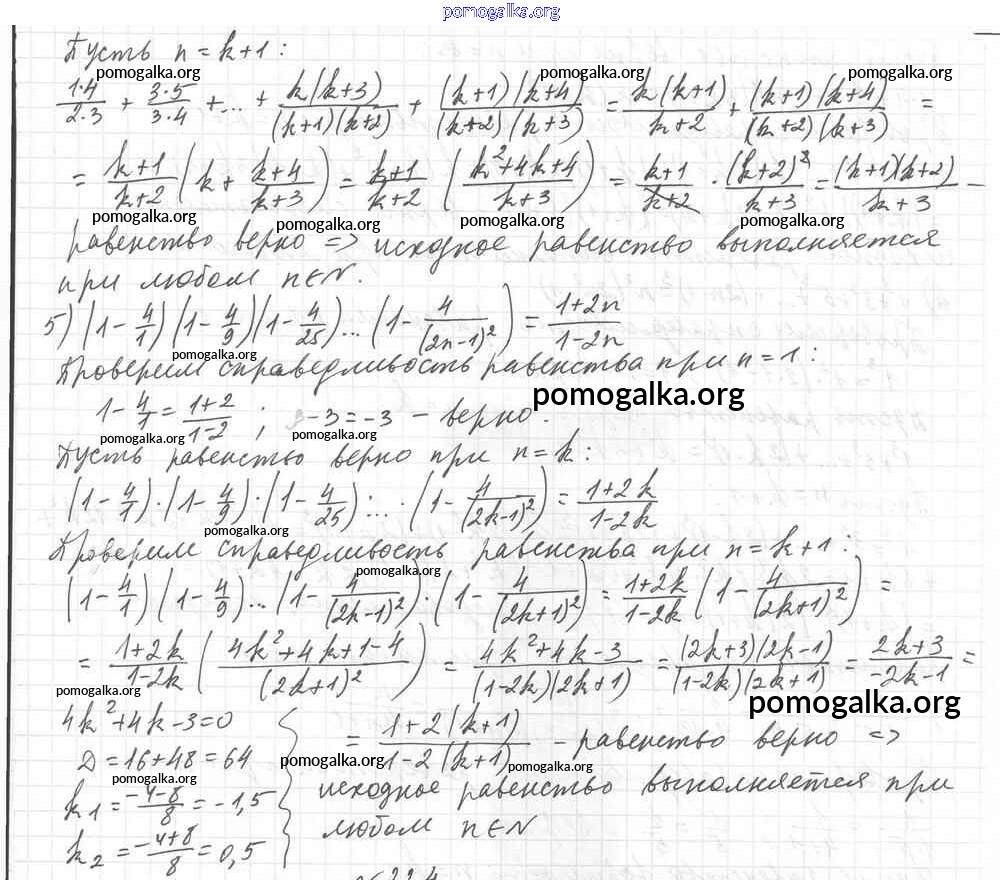 pomogalka.org
Пусть n = k+1 :
pomogalka.org pomogalka.org pomogalka.org
1·4/2·3 + 3·5/3·4 +...+ k(k+3)/(k+1)(k+2) + (k+1)(k+4)/(k+2)(k+3) = k(k+1)/k+2 + (k+1)(k+4)/(k+2)(k+3) =
= k+1/k+2 (k + k+4/k+3) = k+1/k+2 (k²+4k+4/k+3) = k+1/k+2 · (k+2)²/k+3 = (k+1)(k+2)/k+3 –
pomogalka.org pomogalka.org pomogalka.org
равенство верно => исходное равенство выполняется
при любом n∈N.
5) (1 - 4/1)(1 - 4/9)(1 - 4/25)...(1 - 4/(2n-1)²) = 1+2n/1-2n
pomogalka.org
Проверим справедливость равенства при n = 1 :
pomogalka.org
1 - 4/1 = 1+2/1-2 ; -3 = -3 – верно.
pomogalka.org
Пусть равенство верно при n = k :
(1 - 4/1)·(1 - 4/9)·(1 - 4/25)·...·(1 - 4/(2k-1)²) = 1+2k/1-2k
pomogalka.org
Проверим справедливость равенства при n = k+1 :
pomogalka.org
(1 - 4/1)(1 - 4/9)...(1 - 4/(2k-1)²)·(1 - 4/(2k+1)²) = 1+2k/1-2k (1 - 4/(2k+1)²) =
= 1+2k/1-2k (4k²+4k+1-4/(2k+1)²) = 4k²+4k-3/(1-2k)(2k+1) = (2k+3)(2k-1)/(1-2k)(2k+1) = 2k+3/-2k-1 =
pomogalka.org pomogalka.org
4k²+4k-3=0
D = 16+48 = 64
pomogalka.org
k1 = -4-8/8 = -1,5
pomogalka.org
k2 = -4+8/8 = 0,5
= 1+2(k+1)/1-2(k+1) – равенство верно =>
pomogalka.org pomogalka.org
исходное равенство выполняется при
любом n∈N